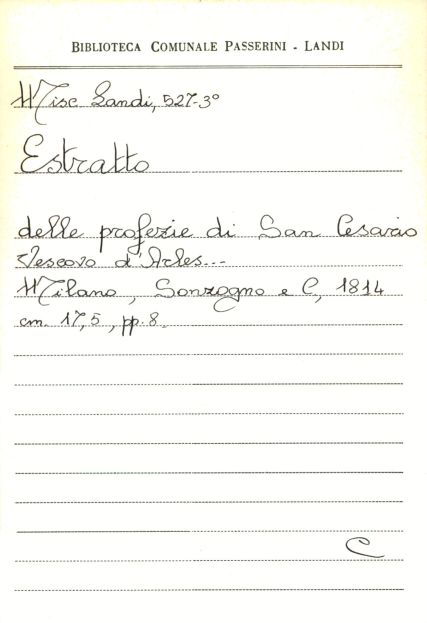 BIBLIOTECA COMUNALE PASSERINI - LANDI
Misc Landi, 527-3°
Estratto
delle profezie di San Cesario
Vescovo d'Arles...
Milano, Sonzogno e C, 1814
cm. 17,5, pp. 8.
C